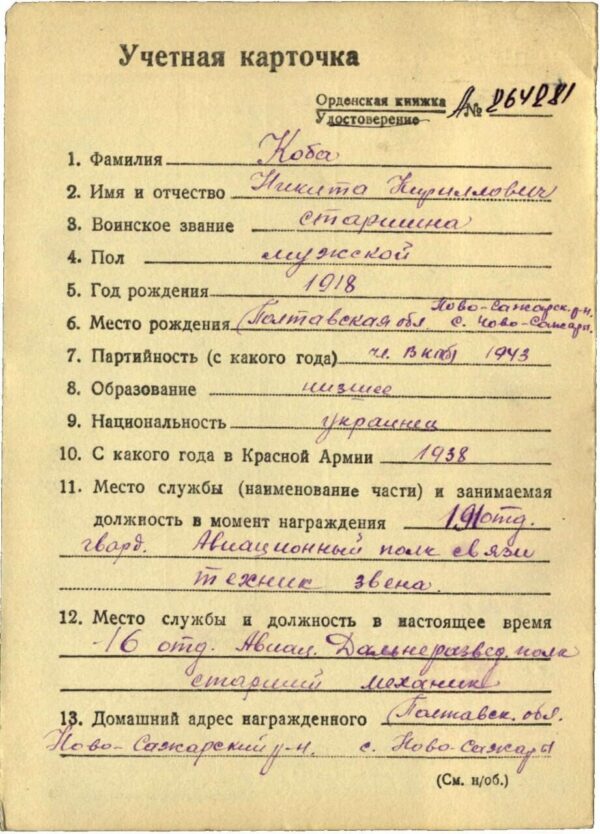 Учетная карточка
Орденская книжка
Удостоверение А № 264281
1. Фамилия Коба
2. Имя и отчество Никита Кириллович
3. Воинское звание старшина
4. Пол мужской
5. Год рождения 1918
Ново-Сажарск. р-н.
6. Место рождения Полтавская обл с. Ново-Сажары
7. Партийность (с какого года) чл. Вкпб 1943
8. Образование низшее
9. Национальность украинец
10. С какого года в Красной Армии 1938
11. Место службы (наименование части) и занимаемая
должность в момент награждения отд.
гвард. Авиационный полк связи
техник звена.
12. Место службы и должность в настоящее время
-16 отд. Авиац. Дальнеразвед. полк
старший механик
13. Домашний адрес награжденного Полтавск. обл.
Ново-Сажарский р-н. с. Ново-Сажары
(См. н/об.)